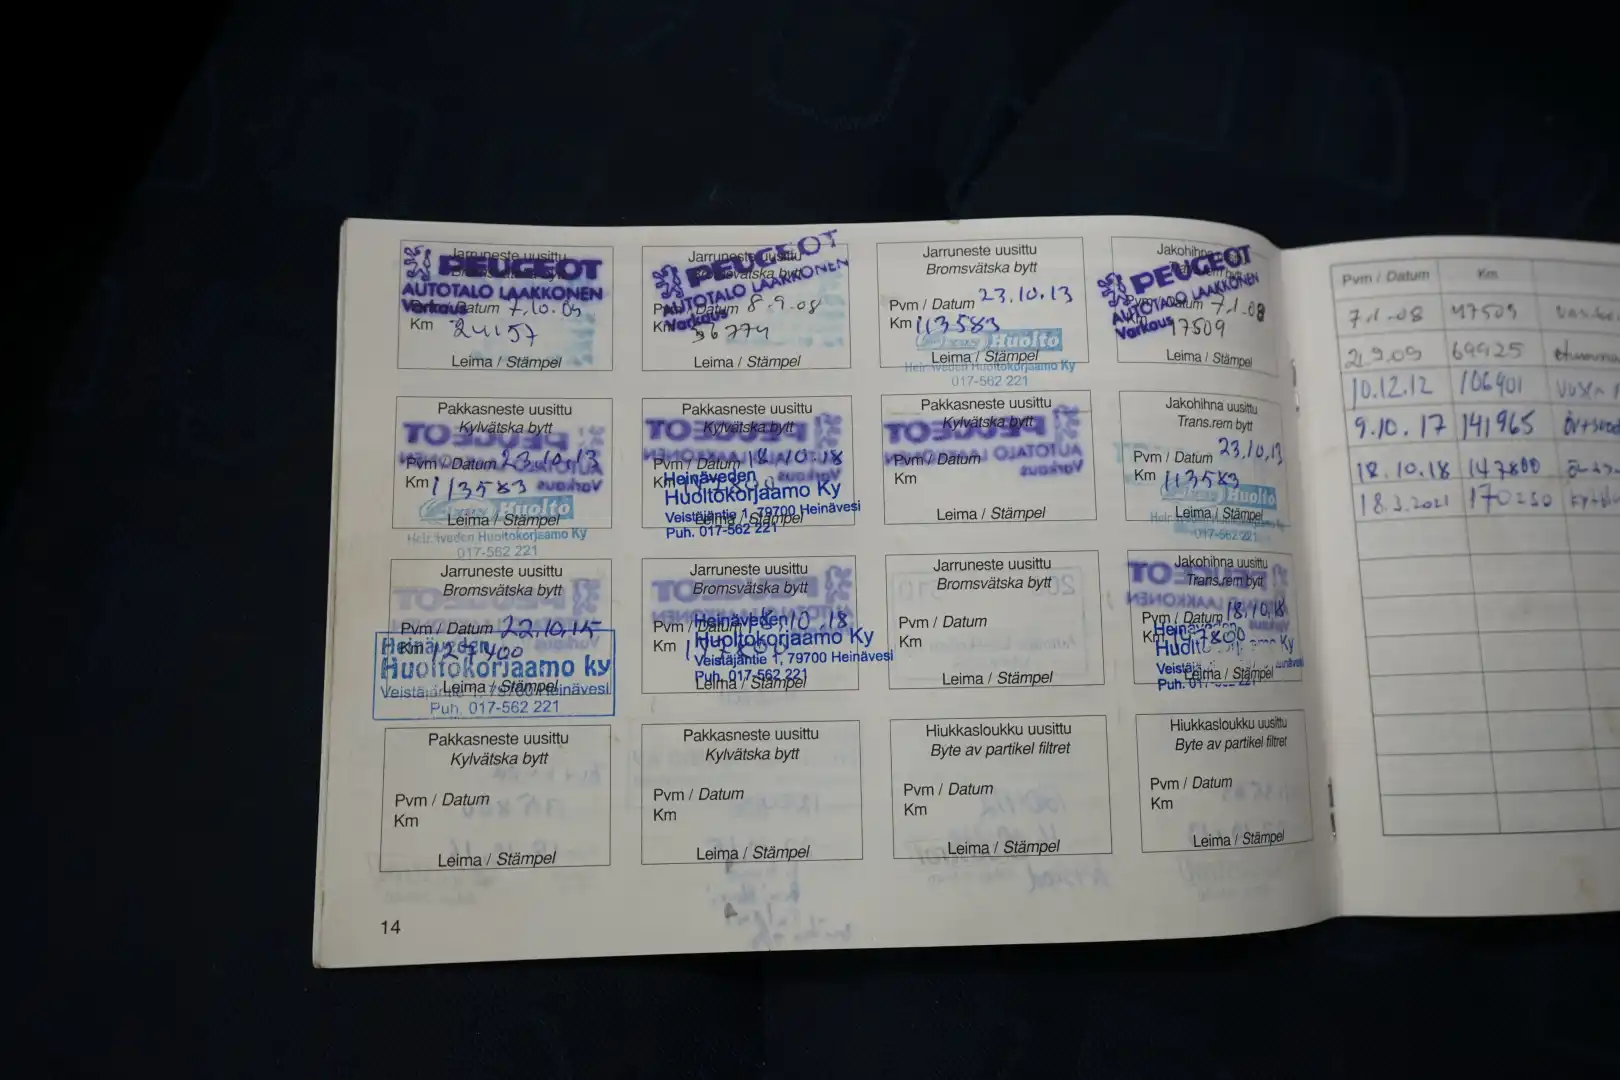 Jarruneste uusittu
PEUGEOT
AUTOTALO LAAKKONEN
Varkaus
Datum 7.10.05
Km 24157
Leima / Stämpel
Jarruneste uusittu
Bromsvätska bytt
PEUGEOT
AUTOTALO LAAKKONEN
Varkaus
Datum 8.9.08
Km 56774
Leima / Stämpel
Jarruneste uusittu
Bromsvätska bytt
Pvm / Datum 23.10.13
Km 113583
Huolto
Leima / Stämpel
Heinäveden Huoltokorjaamo Ky
017-562 221
Jakohihna
PEUGEOT
AUTOTALO LAAKKONEN
Varkaus
Pvm / Datum 7.1.08
Km 47509
Leima / Stämpel
Pakkasneste uusittu
Kylvätska bytt
Pvm / Datum 23.10.13
Km 113583
Huolto
Leima / Stämpel
Heinäveden Huoltokorjaamo Ky
017-562 221
Pakkasneste uusittu
Kylvätska bytt
Pvm / Datum 18.10.18
Km
Heinäveden
Huoltokorjaamo Ky
Veistäjäntie 1, 79700 Heinävesi
Leima / Stämpel
Puh. 017-562 221
Pakkasneste uusittu
Kylvätska bytt
Pvm / Datum
Km
Leima / Stämpel
Jakohihna uusittu
Trans.rem bytt
Pvm / Datum 23.10.13
Km 113583
Huolto
Leima / Stämpel
017-562 221
Jarruneste uusittu
Bromsvätska bytt
Pvm / Datum 22.10.15
Km 127400
Heinäveden
Huoltokorjaamo ky
Leima / Stämpel
Puh. 017-562 221
Jarruneste uusittu
Bromsvätska bytt
Pvm / Datum 18.10.18
Km 147800
Heinäveden
Huoltokorjaamo Ky
Veistäjäntie 1, 79700 Heinävesi
Puh. 017-562 221
Leima / Stämpel
Jarruneste uusittu
Bromsvätska bytt
Pvm / Datum
Km
Leima / Stämpel
Jakohihna uusittu
Trans.rem bytt
Pvm / Datum 18.10.18
Km 147800
Leima / Stämpel
Pakkasneste uusittu
Kylvätska bytt
Pvm / Datum
Km
Leima / Stämpel
Pakkasneste uusittu
Kylvätska bytt
Pvm / Datum
Km
Leima / Stämpel
Hiukkasloukku uusittu
Byte av partikel filtret
Pvm / Datum
Km
Leima / Stämpel
Hiukkasloukku uusittu
Byte av partikel filtret
Pvm / Datum
Km
Leima / Stämpel
14
Pvm / Datum Km
7.1.08 47509
2.9.09 69925
10.12.12 106401
9.10.17 141965
18.10.18 147800
18.3.2021 170250